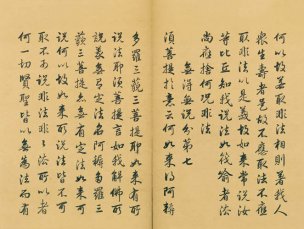 何以故若取非法相則著我人
衆生壽者是故不應取法不應
取非法以是義故如來常說汝
等比丘知我說法如筏喻者法
尚應捨何況非法
無得無說分第七
須菩提於意云何如來得阿耨
多羅三藐三菩提耶如來有所
說法耶須菩提言如我解佛所
說義無有定法名阿耨多羅三
藐三菩提亦無有定法如來可
說何以故如來所說法皆不可
取不可說非法非非法所以者
何一切賢聖皆以無為法而有